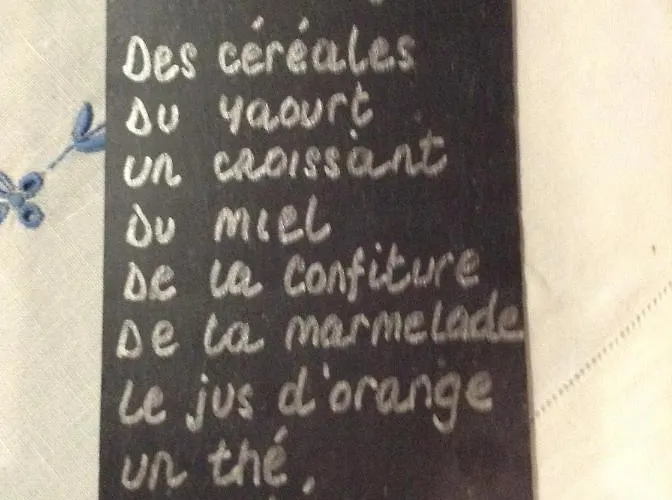 Des céréales
Du yaourt
un croissant
Du miel
De la confiture
De la marmelade
Le jus d'orange
un thé,